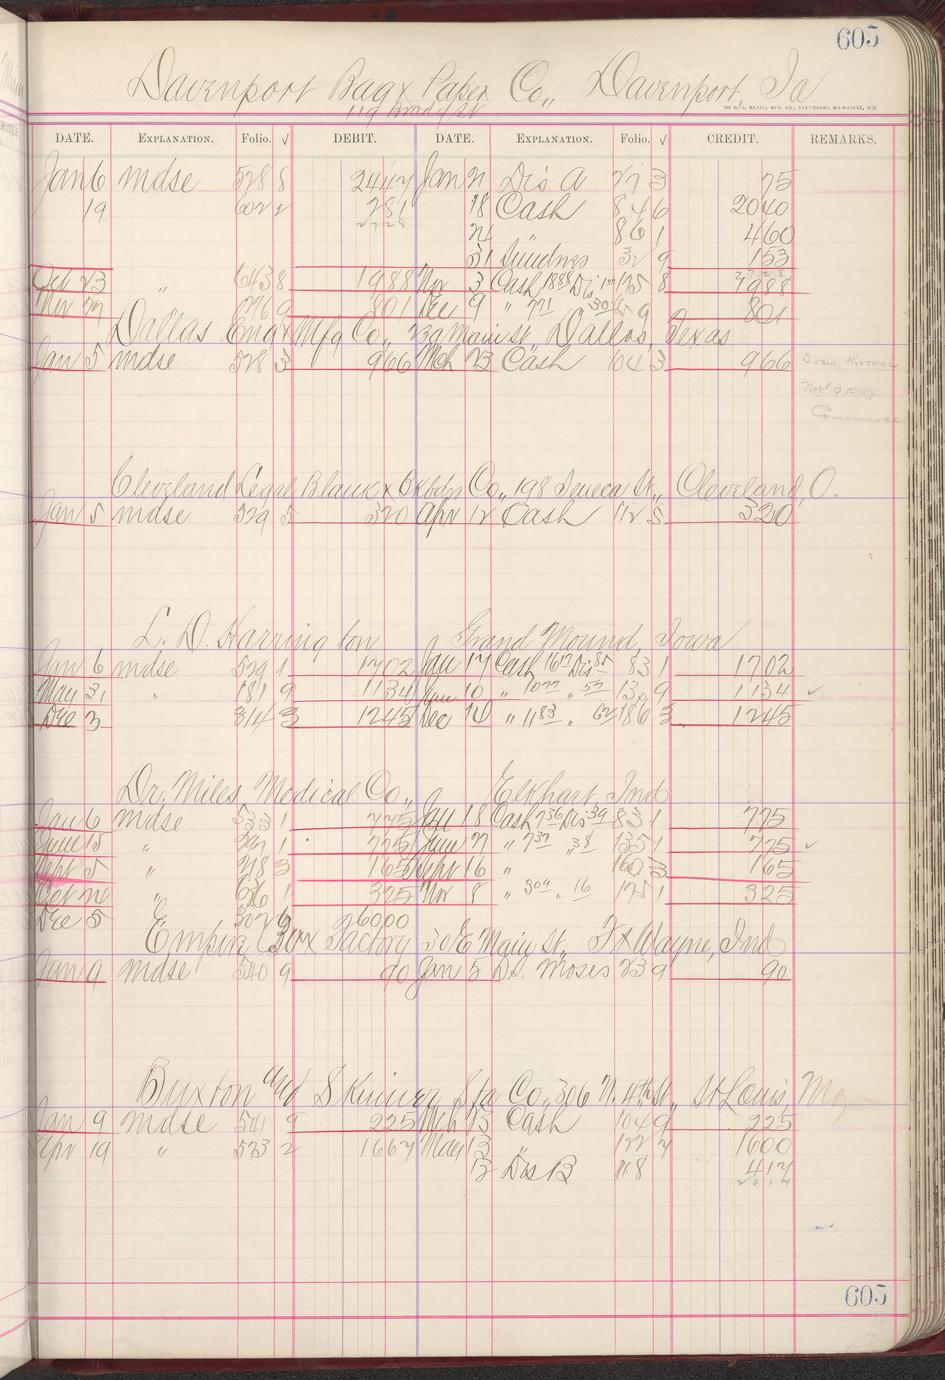 605
Davenport Bag & Paper Co., Davenport, Ia
119 Brady St
THE H. G. RAZALL MFG. CO., STATIONERS, MILWAUKEE, WIS.
DATE. EXPLANATION. Folio. √ DEBIT. DATE. EXPLANATION. Folio. √ CREDIT. REMARKS.
Jan 6 mdse 528 8 2447 Jan 21 Dis A 27 3 75
19 602 2 281 18 Cash 84 6 2040
2728 24 " 86 1 460
31 Sundries 32 9 153
Oct 23 " 643 8 1988 Nov 3 Cash 1888 Dis 100 175 8 1988
Nov 27 276 9 801 Dec 9 " 771 30 9 801
Dallas Eng & Mfg Co., Main St Dallas, Texas
Jan 5 mdse 528 3 966 Mch 23 Cash 104 3 966 Draw through
Commerce
Cleveland Legal Blank & Co., 198 Seneca St., Cleveland, O.
Jan 5 mdse 529 5 320 Apr 12 Cash 112 5 320
L. D. Harrington Grand Mound, Iowa
Jan 6 mdse 529 1 1702 Jan 17 Cash 1617 Dis 85 83 1 1702
May 31 " 181 9 1134 June 10 " 1077 " 57 13 9 1134 ✓
Dec 3 314 3 1245 Dec 14 " 1183 " 62 186 3 1245
Dr. Miles Medical Co., Elkhart Ind
Jan 6 mdse 533 1 775 Jan 18 Cash 736 Dis 39 83 1 775
June 15 " 1 775 June 27 " 737 " 38 135 1 775 ✓
Sept 5 " 218 3 165 Sept 16 " 160 3 165
Oct 24 " 1 325 Nov 8 " 309 " 16 175 1 325
Dec 5 307 9 26000
Empire Box Factory 30 E Main St., Ft Wayne, Ind
Jan 9 mdse 540 9 90 Jan 5 Ds. Moses 23 9 90
Buxton and Skinner Sta Co, 306 N. 4th St., St Louis, Mo
Jan 9 mdse 541 9 225 Mch 23 Cash 104 9 225
Apr 19 " 573 2 1667 May 13 " 122 7 1600
13 Dis B 118 417
2017
605